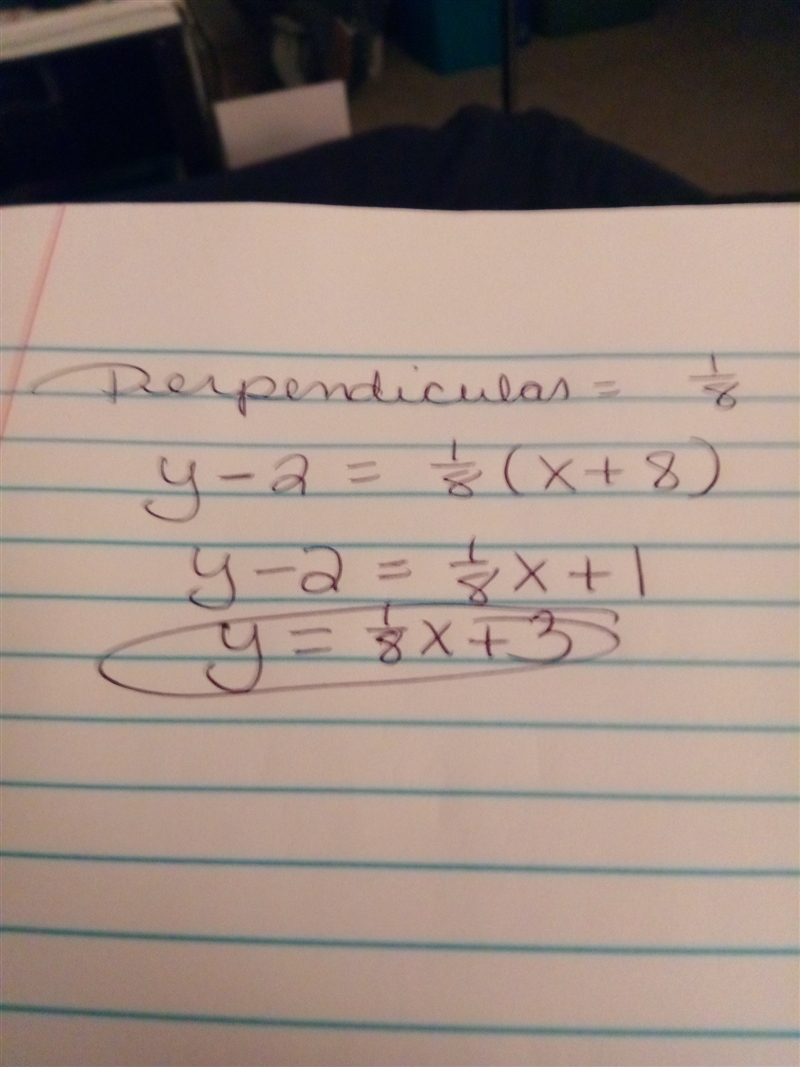 Perpendicular = 1/8
y - 2 = 1/8 (x + 8)
y - 2 = 1/8 x + 1
y = 1/8 x + 3